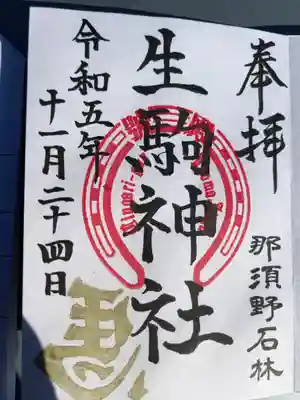 奉拝
那須野石林
生駒神社
令和五年
十一月二十四日
馬